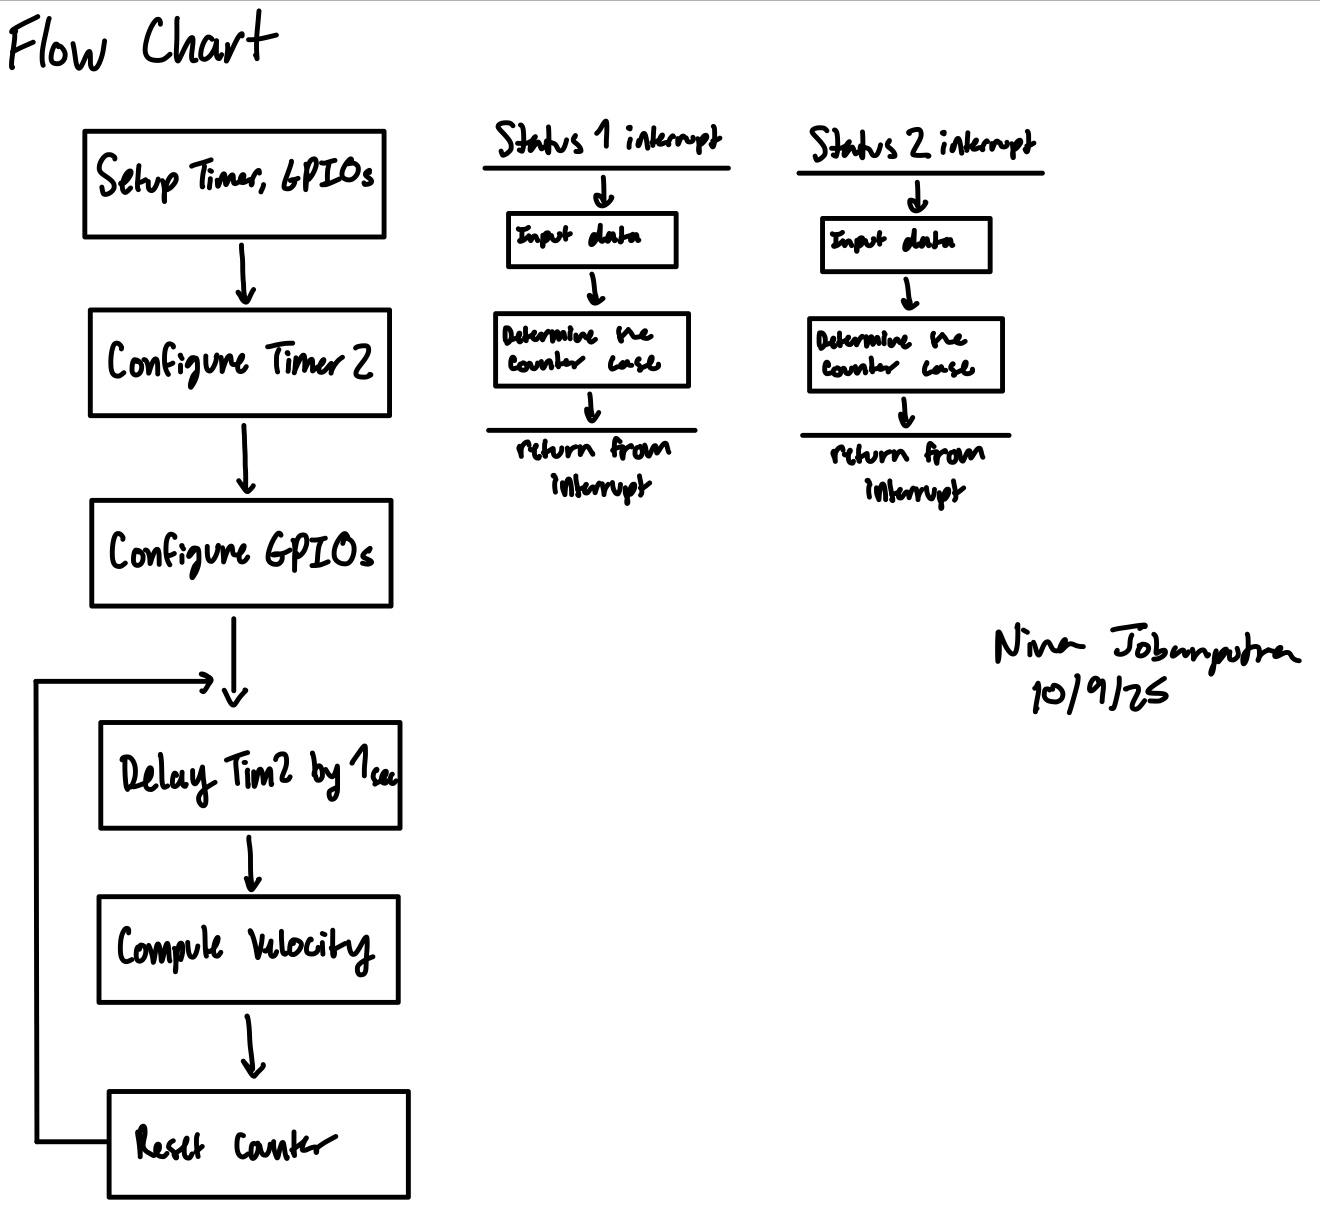 Flow Chart
Setup Timer, GPIOs
Configure Timer 2
Configure GPIOs
Delay Tim2 by 1sec
Compute Velocity
Reset Counter
Status 1 interrupt
Input data
Determine the
counter case
return from
interrupt
Status 2 interrupt
Input data
Determine the
counter case
return from
interrupt
Nina Jobanputra
10/9/25